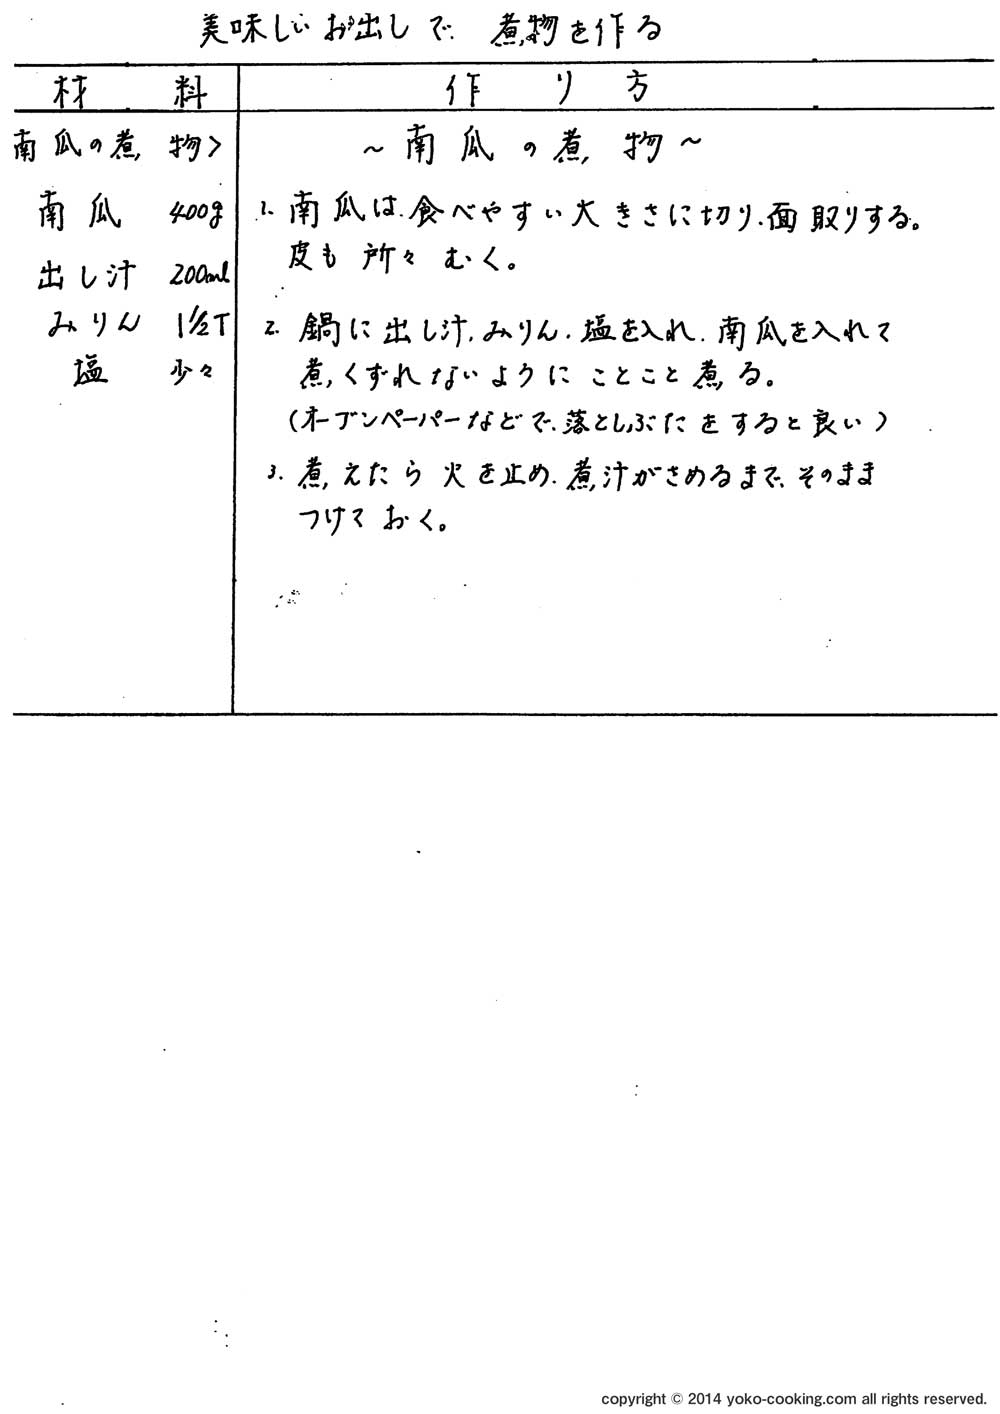 美味しいお出しで、煮物を作る
材料
作り方
南瓜の煮物>
南瓜 400g
出し汁 200ml
みりん 1½T
塩 少々
~南瓜の煮物~
1. 南瓜は、食べやすい大きさに切り、面取りする。
皮も所々むく。
2. 鍋に出し汁、みりん、塩を入れ、南瓜を入れて
煮くずれないようにことこと煮る。
(オーブンペーパーなどで、落としぶたをすると良い)
3. 煮えたら火を止め、煮汁がさめるまで、そのまま
つけておく。
copyright © 2014 yoko-cooking.com all rights reserved.